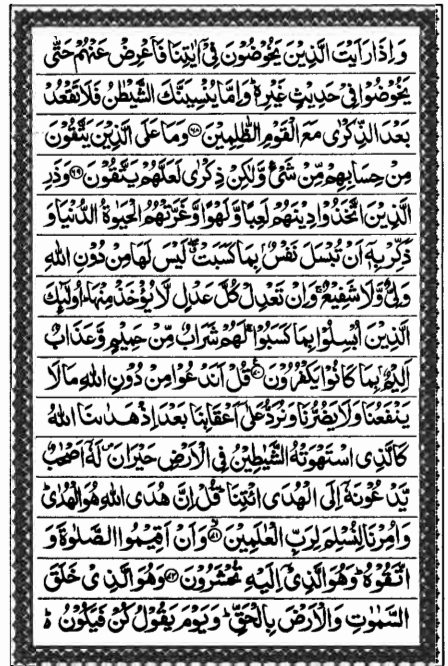 وَاِذَا رَاَیْتَ الَّذِیْنَ یَخُوْضُوْنَ فِیْۤ اٰیٰتِنَا فَاَعْرِضْ عَنْهُمْ حَتّٰی
یَخُوْضُوْا فِیْ حَدِیْثٍ غَیْرِهٖ ؕ وَاِمَّا یُنْسِیَنَّكَ الشَّیْطٰنُ فَلَا تَقْعُدْ
بَعْدَ الذِّكْرٰی مَعَ الْقَوْمِ الظّٰلِمِیْنَ ۶۸ وَمَا عَلَی الَّذِیْنَ یَتَّقُوْنَ
مِنْ حِسَابِهِمْ مِّنْ شَیْءٍ وَّلٰكِنْ ذِكْرٰی لَعَلَّهُمْ یَتَّقُوْنَ ۶۹ وَذَرِ
الَّذِیْنَ اتَّخَذُوْا دِیْنَهُمْ لَعِبًا وَّلَهْوًا وَّغَرَّتْهُمُ الْحَیٰوةُ الدُّنْیَا وَ
ذَكِّرْ بِهٖۤ اَنْ تُبْسَلَ نَفْسٌۢ بِمَا كَسَبَتْ ۖ لَیْسَ لَهَا مِنْ دُوْنِ اللّٰهِ
وَلِیٌّ وَّلَا شَفِیْعٌ ۚ وَاِنْ تَعْدِلْ كُلَّ عَدْلٍ لَّا یُؤْخَذْ مِنْهَا ؕ اُولٰٓئِكَ
الَّذِیْنَ اُبْسِلُوْا بِمَا كَسَبُوْا ۚ لَهُمْ شَرَابٌ مِّنْ حَمِیْمٍ وَّعَذَابٌ
اَلِیْمٌۢ بِمَا كَانُوْا یَكْفُرُوْنَ ۷۰ قُلْ اَنَدْعُوْا مِنْ دُوْنِ اللّٰهِ مَا لَا
یَنْفَعُنَا وَلَا یَضُرُّنَا وَنُرَدُّ عَلٰۤی اَعْقَابِنَا بَعْدَ اِذْ هَدٰىنَا اللّٰهُ
كَالَّذِی اسْتَهْوَتْهُ الشَّیٰطِیْنُ فِی الْاَرْضِ حَیْرَانَ ۪ لَهٗۤ اَصْحٰبٌ
یَّدْعُوْنَهٗۤ اِلَی الْهُدَی ائْتِنَا ؕ قُلْ اِنَّ هُدَی اللّٰهِ هُوَ الْهُدٰی ؕ
وَاُمِرْنَا لِنُسْلِمَ لِرَبِّ الْعٰلَمِیْنَ ۷۱ وَاَنْ اَقِیْمُوا الصَّلٰوةَ وَ
اتَّقُوْهُ ؕ وَهُوَ الَّذِیْۤ اِلَیْهِ تُحْشَرُوْنَ ۷۲ وَهُوَ الَّذِیْ خَلَقَ
السَّمٰوٰتِ وَالْاَرْضَ بِالْحَقِّ ؕ وَیَوْمَ یَقُوْلُ كُنْ فَیَكُوْنُ ۬ؕ